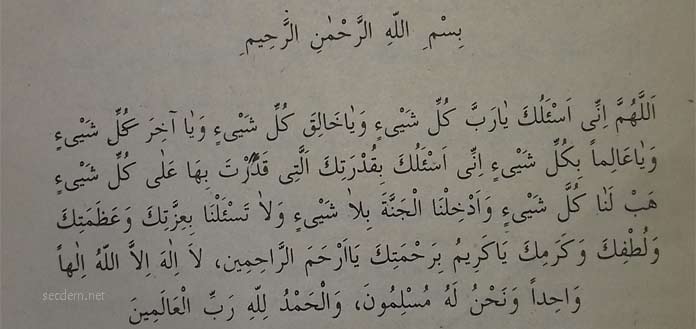 بِسْمِ اللّٰهِ الرَّحْمٰنِ الرَّحِيمِ
اَللّٰهُمَّ اِنِّى اَسْئَلُكَ يٰارَبَّ كُلِّ شَيْىءٍ وَيٰاخَالِقَ كُلِّ شَيْىءٍ وَيٰا آخِرَ كُلِّ شَيْىءٍ
وَيٰاعَالِماً بِكُلِّ شَيْىءٍ اِنِّى اَسْئَلُكَ بِقُدْرَتِكَ اَلَّتِى قَدَّرْتَ بِهَا عَلٰى كُلِّ شَيْىءٍ
هَبْ لَنٰا كُلَّ شَيْىءٍ وَاَدْخِلْنَا الْجَنَّةَ بِلاٰ شَيْىءٍ وَلاٰ تَسْئَلْنَا بِعِزَّتِكَ وَعَظَمَتِكَ
وَلُطْفِكَ وَكَرَمِكَ يَاكَرِيمُ بِرَحْمَتِكَ يَااَرْحَمَ الرَّاحِمِين، لاَ اِلٰهَ اِلاَّ اللّٰهُ اِلٰهاً
وَاحِداً وَنَحْنُ لَهُ مُسْلِمُونَ، وَالْحَمْدُ لِلّٰهِ رَبِّ الْعَالَمِينَ
secdem.net